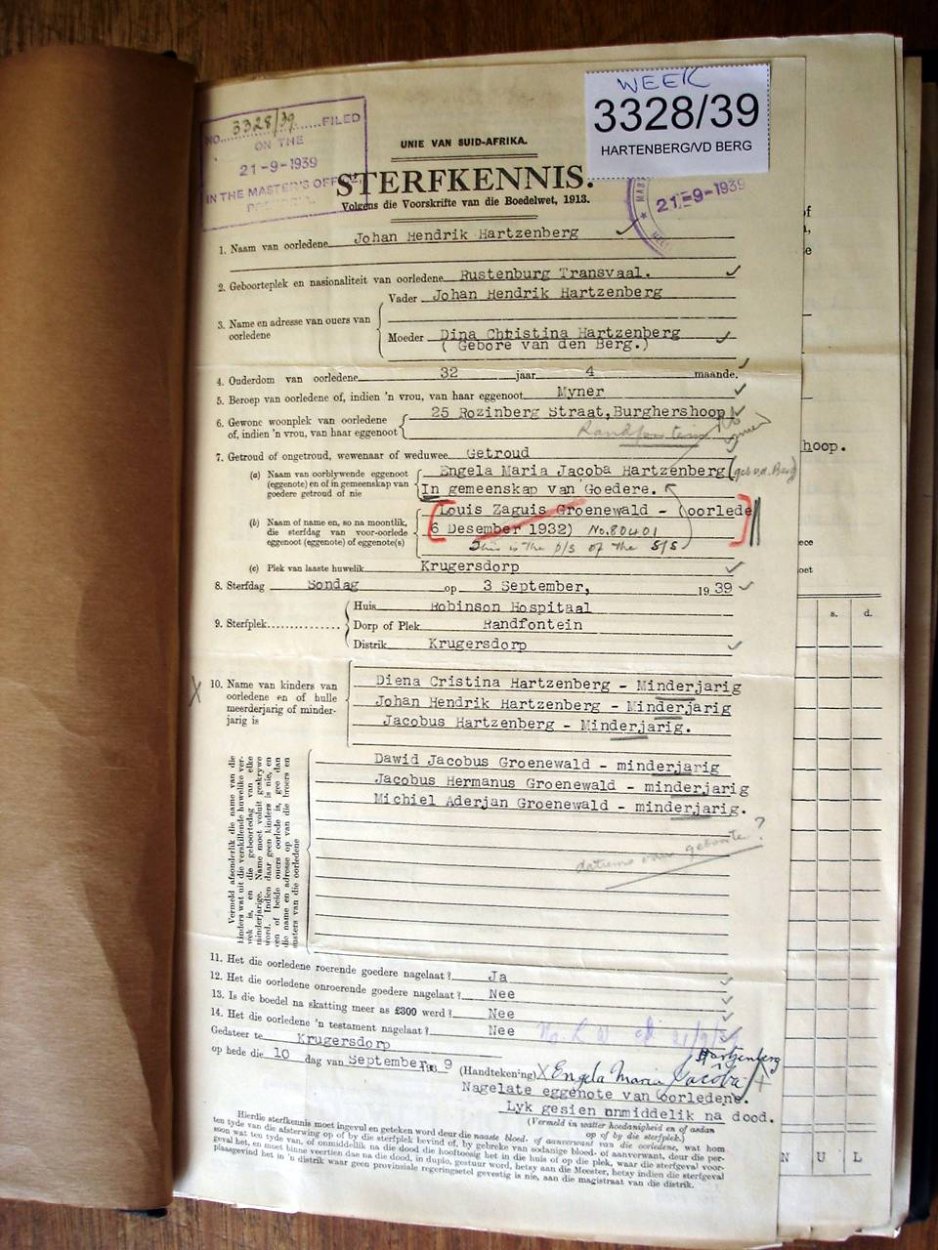 WEEK
3328/39
HARTENBERG/VD BERG
NO. 3328/39 FILED
ON THE
21-9-1939
IN THE MASTER'S OFFICE
21-9-1939
UNIE VAN SUID-AFRIKA.
STERFKENNIS.
Volgens die Voorskrifte van die Boedelwet, 1913.
1. Naam van oorledene Johan Hendrik Hartzenberg
2. Geboorteplek en nasionaliteit van oorledene Rustenburg Transvaal.
Vader Johan Hendrik Hartzenberg
3. Name en adresse van ouers van oorledene
Moeder Dina Christina Hartzenberg
( Gebore van den Berg.)
4. Ouderdom van oorledene 32 jaar 4 maande.
5. Beroep van oorledene of, indien 'n vrou, van haar eggenoot Myner
6. Gewone woonplek van oorledene 25 Rozinberg Straat,Burghershoop
of, indien 'n vrou, van haar eggenoot Randfontein
7. Getroud of ongetroud, wewenaar of weduwee Getroud
(a) Naam van oorblywende eggenoot Engela Maria Jacoba Hartzenberg (geb v.d. Berg)
(eggenote) en of in gemeenskap van In gemeenskap van Goedere.
goedere getroud of nie
Louis Zaguis Groenewald - (oorlede
(b) Naam of name en, so na moontlik, 6 Desember 1932) No. 80401
die sterfdag van voor-oorlede
eggenoot (eggenote) of eggenote(s) This is the p/s of the s/s
(c) Plek van laaste huwelik Krugersdorp
8. Sterfdag Sondag op 3 September, 1939
Huis Robinson Hospitaal
9. Sterfplek Dorp of Plek Randfontein
Distrik Krugersdorp
10. Name van kinders van Diena Cristina Hartzenberg - Minderjarig
oorledene en of hulle Johan Hendrik Hartzenberg - Minderjarig
meerderjarig of minder- Jacobus Hartzenberg - Minderjarig.
jarig is
Dawid Jacobus Groenewald - minderjarig
Jacobus Hermanus Groenewald - minderjarig
Michiel Aderjan Groenewald - minderjarig.
datums van geboorte?
Vermeld afsonderlik die name van die
kinders wat uit die verskillende huwelike ver-
wek is, en die geboortedag van elke
minderjarige. Name moet voluit geskrywe
word. Indien daar geen kinders is nie, en
een of beide ouers oorlede is, gee dan
die name en adresse op van die broers en
susters van die oorledene
11. Het die oorledene roerende goedere nagelaat? Ja
12. Het die oorledene onroerende goedere nagelaat? Nee
13. Is die boedel na skatting meer as £300 werd? Nee
14. Het die oorledene 'n testament nagelaat? Nee
Gedateer te Krugersdorp
op hede die 10 dag van September, 19 9
(Handtekening) X Engela Maria Jacoba Hartzenberg
Nagelate eggenote van oorledene.
Lyk gesien onmiddelik na dood.
(Vermeld in watter hoedanigheid en of anders
op of by die sterfplek.)
Hierdie sterfkennis moet ingevul en geteken word deur die naaste bloed- of aanverwant van die oorledene, wat hom
ten tyde van die afsterwing op of by die sterfplek bevind of, by gebreke van sodanige bloed- of aanverwant, deur die per-
soon wat ten tyde van, of onmiddellik na die dood die hooftoesig het in die huis of op die plek, waar die sterfgeval voor-
geval het, en moet binne veertien dae na die dood, in duplo, gestuur word, hetsy aan die Meester, hetsy indien die sterfgeval
plaasgevind het in 'n distrik waar geen provinsiale regeringsetel gevestig is nie, aan die magistraat van die distrik.
hoop.
s. d.
N U L